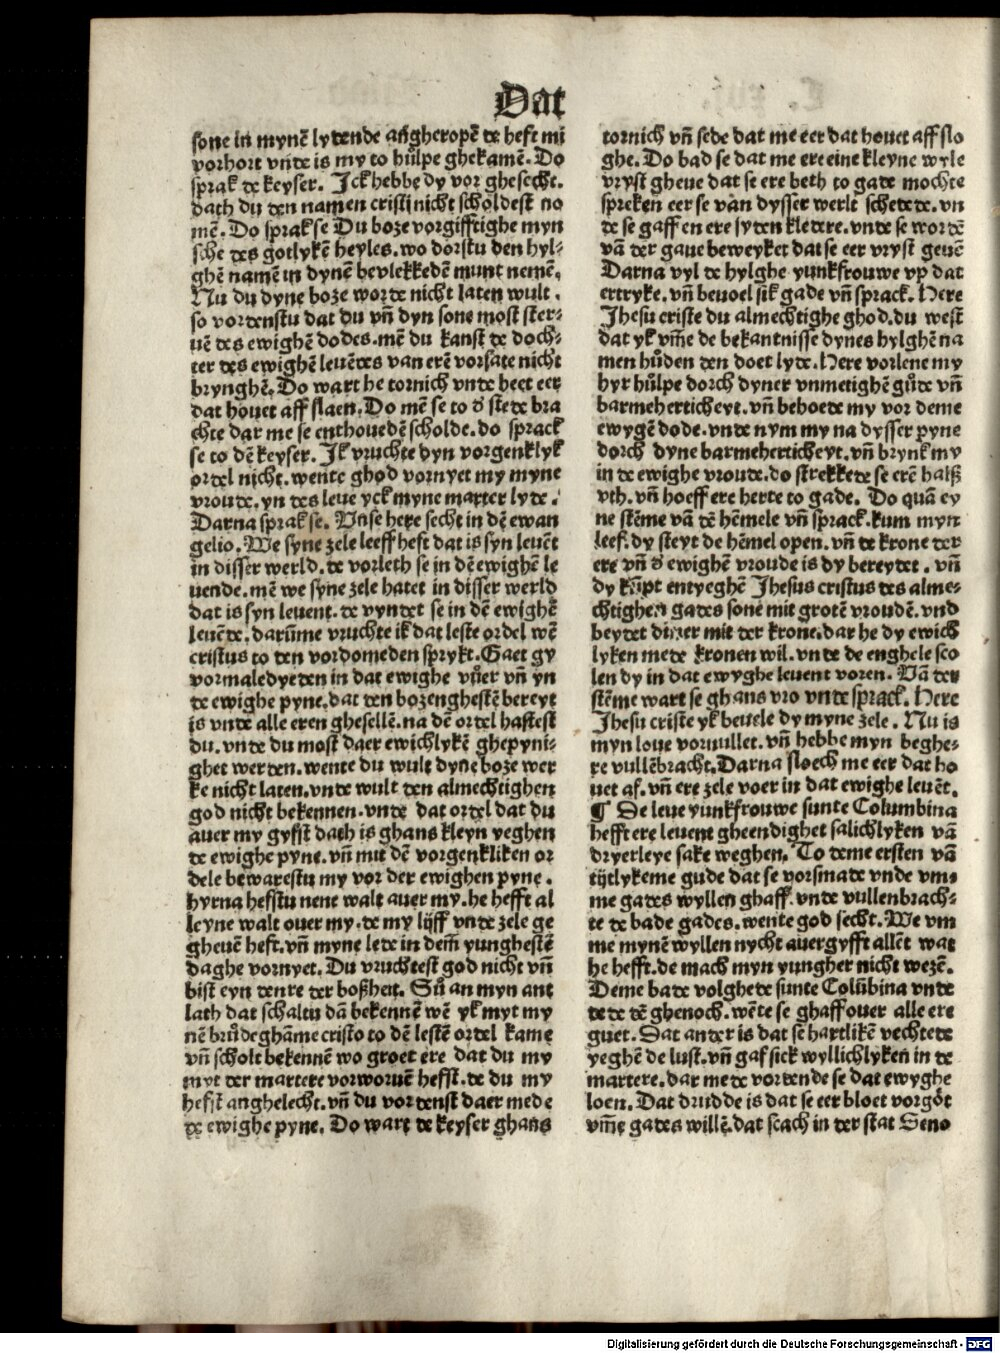 Dat
sone in mynē lydende angheropē de heft mi
vorhort vnde is my to hůlpe ghekamē. Do
sprak de keyser. Ick hebbe dy vor ghesecht.
dath du den namen cristi nicht scholdest no
mē. Do sprak se Du boze vorgifftighe myn
sche des gotlykē heyles. wo dorstu den hyl⸗
ghē namē in dynē bevlekkedē munt nemē.
Nu du dyne boze worde nicht laten wult.
so vordenstu dat du vn̄ dyn sone most ster⸗
uē des ewighē dodes. mē du kanst de doch⸗
ter des ewighē leuēdes van erē vorsate nicht
brynghē. Do wart he tornich vnde heet eer
dat houet aff slaen. Do mē se to d̄ stede bra
chte dar me se enthouedē scholde. do sprack
se to dē keyser. Ik vruchte dyn vorgenklyk
ordel nicht. wente ghod vornyet my myne
vroude. yn des leue yck myne marter lyde.
Darna sprak se. Vnse here secht in dē ewan
gelio. We syne zele leeff heft dat is syn leuēt
in disser werld. de vorleth se in dē ewighē le
uende. mē we syne zele hatet in disser werld
dat is syn leuent. de vyndet se in dē ewighē
leuēde. darūme vruchte ik dat leste ordel wē
cristus to den vordomeden sprykt. Gaet gy
vormaledyeden in dat ewighe vůer vn̄ yn
de ewighe pyne. dat den bozengheſtē bereyt
is vnde alle eren ghesellē. na dē ordel hastest
du. vnde du most daer ewichlykē ghepyni⸗
ghet werden. wente du wult dyne boze wer
ke nicht laten. vnde wult den almechtighen
god nicht bekennen. vnde dat ordel dat du
auer my gyfst dath is ghans kleyn yeghen
de ewighe pyne. vn̄ mit dē vorgenkliken or
dele bewarestu my vor der ewighen pyne.
hyrna hefstu nene walt auer my. he hefft al
leyne walt ouer my. de my lijff vnde zele ge
gheuē heft. vn̄ myne lede in dem̄ yunghestē
daghe vornyet. Du vruchtest god nicht vn̄
bist eyn denre der boßheit. Sů an myn ant
lath dat schaltu dā bekennē wē yk myt my
nē brůdeghāme cristo to dē lestē ordel kame
vn̄ scholt bekennē wo groet ere dat du my
myt der martere vorworuē hefst. de du my
hefst anghelecht. vn̄ du vordenst daer mede
de ewighe pyne. Do wart de keyser ghans
tornich vn̄ sede dat me eer dat houet aff slo
ghe. Do bad se dat me ere eine kleyne wyle
vryst gheue dat se ere beth to gade mochte
spreken eer se van dysser werlt schedede. vn
de se gaff en ere syden kledere. vnde se wordē
vā der gaue beweyket dat se eer vryst geuē
Darna vyl de hylghe yunkfrouwe vp dat
ertryke. vn̄ beuoel sik gade vn̄ sprack. Here
Jhesu criste du almechtighe ghod. du west
dat yk vm̄e de bekantnisse dynes hylghē na
men hůden den doet lyde. Here vorlene my
hyr hůlpe dorch dyner vnmetighē gůde vn̄
barmeherticheyt. vn̄ behoede my vor deme
ewygē dode. vnde nym my na dysser pyne
dorch dyne barmeherticheyt. vn̄ brynk my
in de ewighe vroude. do strekkede se erē halß
vth. vn̄ hoeff ere herte to gade. Do quā ey
ne stēme vā dē hēmele vn̄ sprack. kum myn
leef. dy steyt de hēmel open. vn̄ de krone der
ere vn̄ d̄ ewighē vroude is dy bereydet. vn̄
dy kūpt entyeghē Jhesus cristus des alme⸗
chtighen gades sone mit grotē vroudē. vnd
beydet diner mit der krone. dar he dy ewich
lyken mede kronen wil. vnde de enghele sco
len dy in dat ewyghe leuent voren. Vā der
stēme wart se ghans vro vnde sprack. Here
Jhesu criste yk beuele dy myne zele. Nu is
myn loue voruullet. vn̄ hebbe myn beghe⸗
re vullēbracht. Darna sloech me eer dat ho
uet af. vn̄ ere zele voer in dat ewighe leuēt.
¶ De leue yunkfrouwe sunte Columbina
hefft ere leuent gheendighet salichlyken vā
dryerleye sake weghen. To deme ersten vā
tijtlykeme gude dat se vorsmade vnde vm⸗
me gades wyllen ghaff. vnde vullenbrach⸗
te de bade gades. wente god secht. We vm
me mynē wyllen nycht auergyfft allēt wat
he hefft. de mach myn yungher nicht wezē.
Deme bade volghede sunte Colūbina vnde
dede dē ghenoch. wēte se ghaff ouer alle ere
guet. Dat ander is dat se hartlikē vechtede
yeghē de lust. vn̄ gaf sick wyllichlyken in de
martere. dar mede vordende se dat ewyghe
loen. Dat drudde is dat se eer bloet vorgōt
vm̄e gades willē. dat scach in der stat Seno
Digitalisierung gefördert durch die Deutsche Forschungsgemeinschaft - DFG